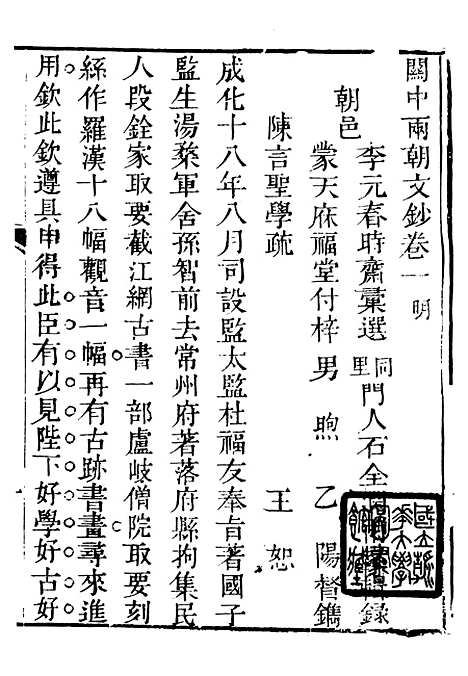 關中兩朝文鈔卷一 明
朝邑
李元春時齋彙選 同里 門人石全 錄
蒙天庥福堂付梓 男 煦 乙 陽督鐫
陳言聖學疏 王恕
成化十八年八月司設監太監杜福友奉旨著國子
監生湯棻軍舍孫智前去常州府著落府縣拘集民
人段銓家取要截江網古書一部盧岐僧院取要刻
絲作羅漢十八幅觀音一幅再有古跡書畫尋來進
用欽此欽遵具申得此臣有以見陛下好學好古好